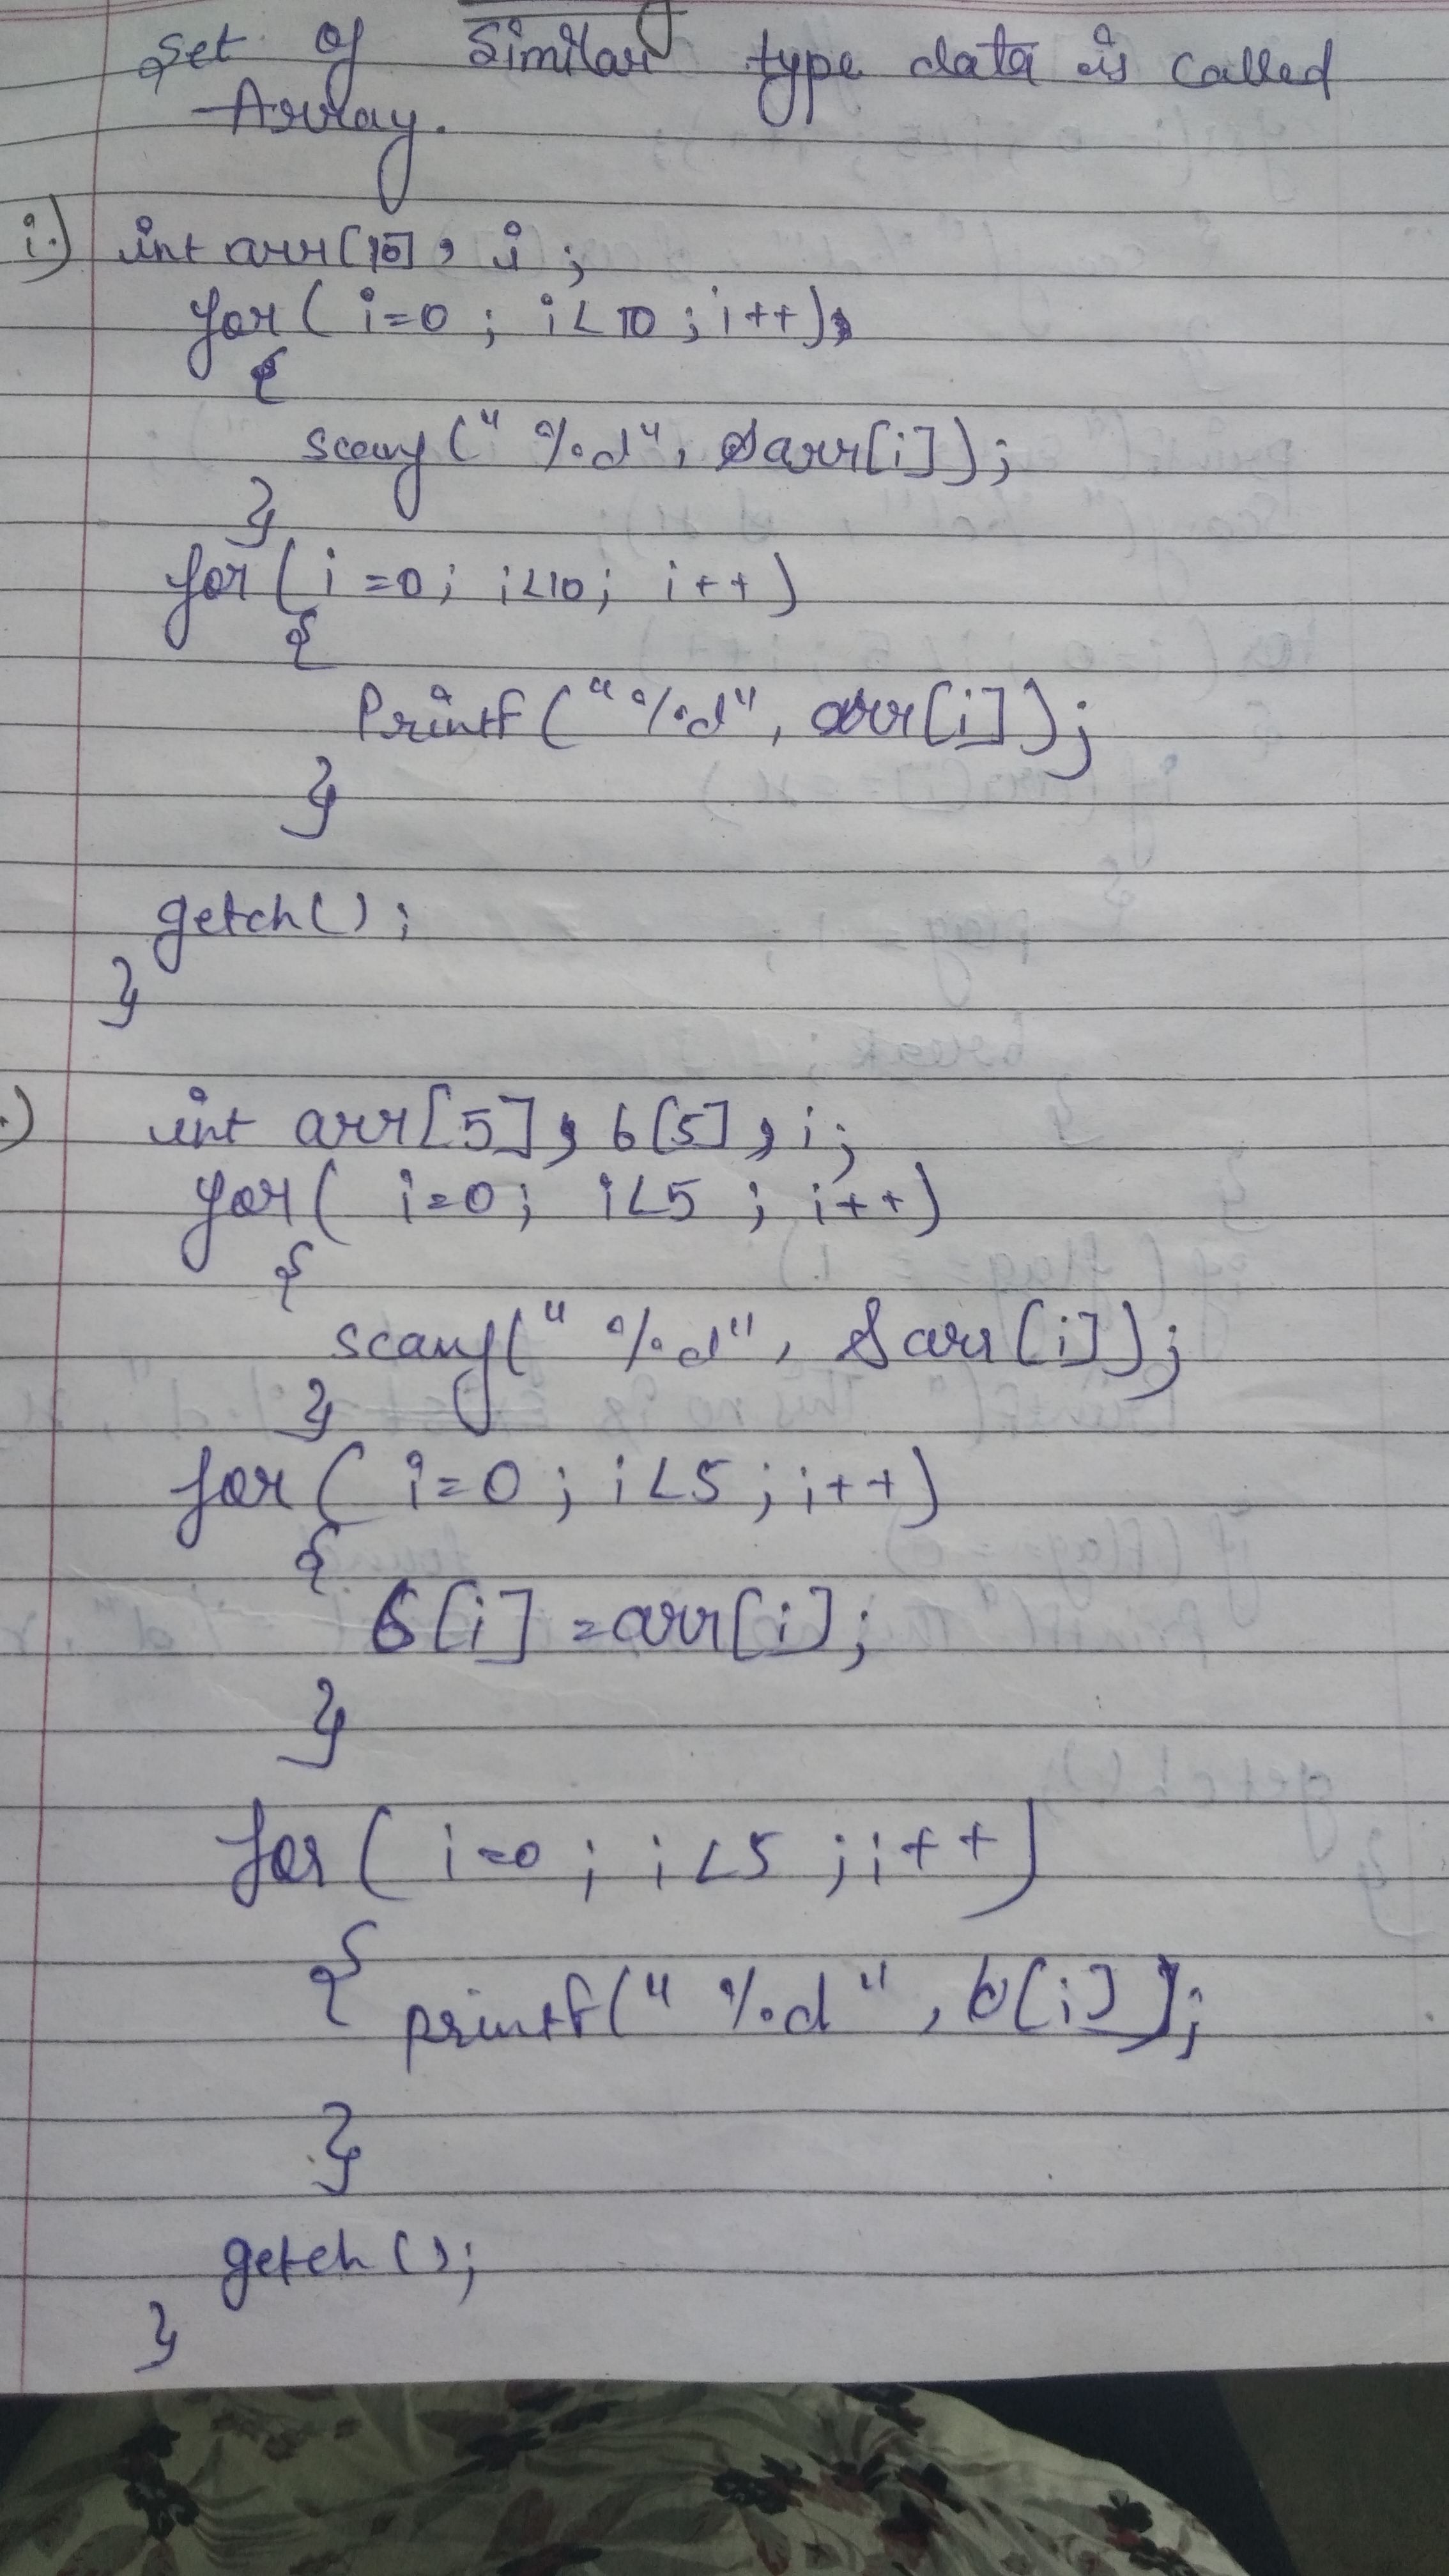 Set of Similar type data is called
Array.
i.) int arr[10], i;
for( i=0 ; i<10 ; i++)
{
scanf("%d", &arr[i]);
}
for( i=0; i<10; i++)
{
Printf("%d", arr[i]);
}
getch();
}
.) int arr[5], b[5], i;
for( i=0; i<5 ; i++)
{
scanf("%d", &arr[i]);
}
for( i=0 ; i<5 ; i++)
{
b[i] = arr[i];
}
for( i=0 ; i<5 ; i++)
{ printf("%d", b[i]);
}
getch();
}